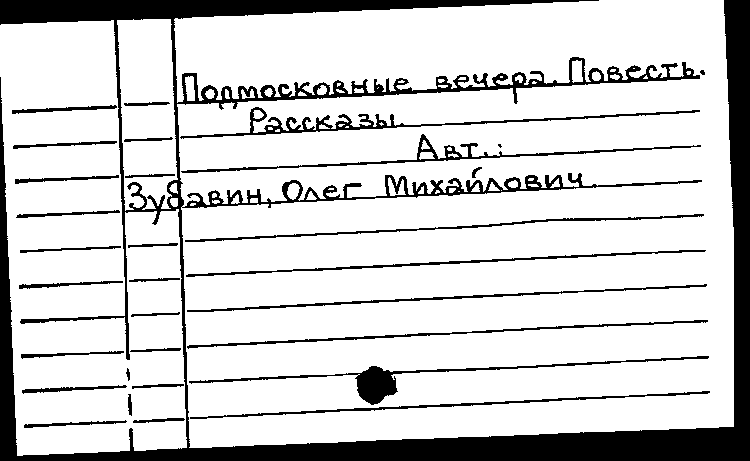 Подмосковные вечера. Повесть.
Рассказы.
Авт.:
Зубавин, Олег Михайлович.